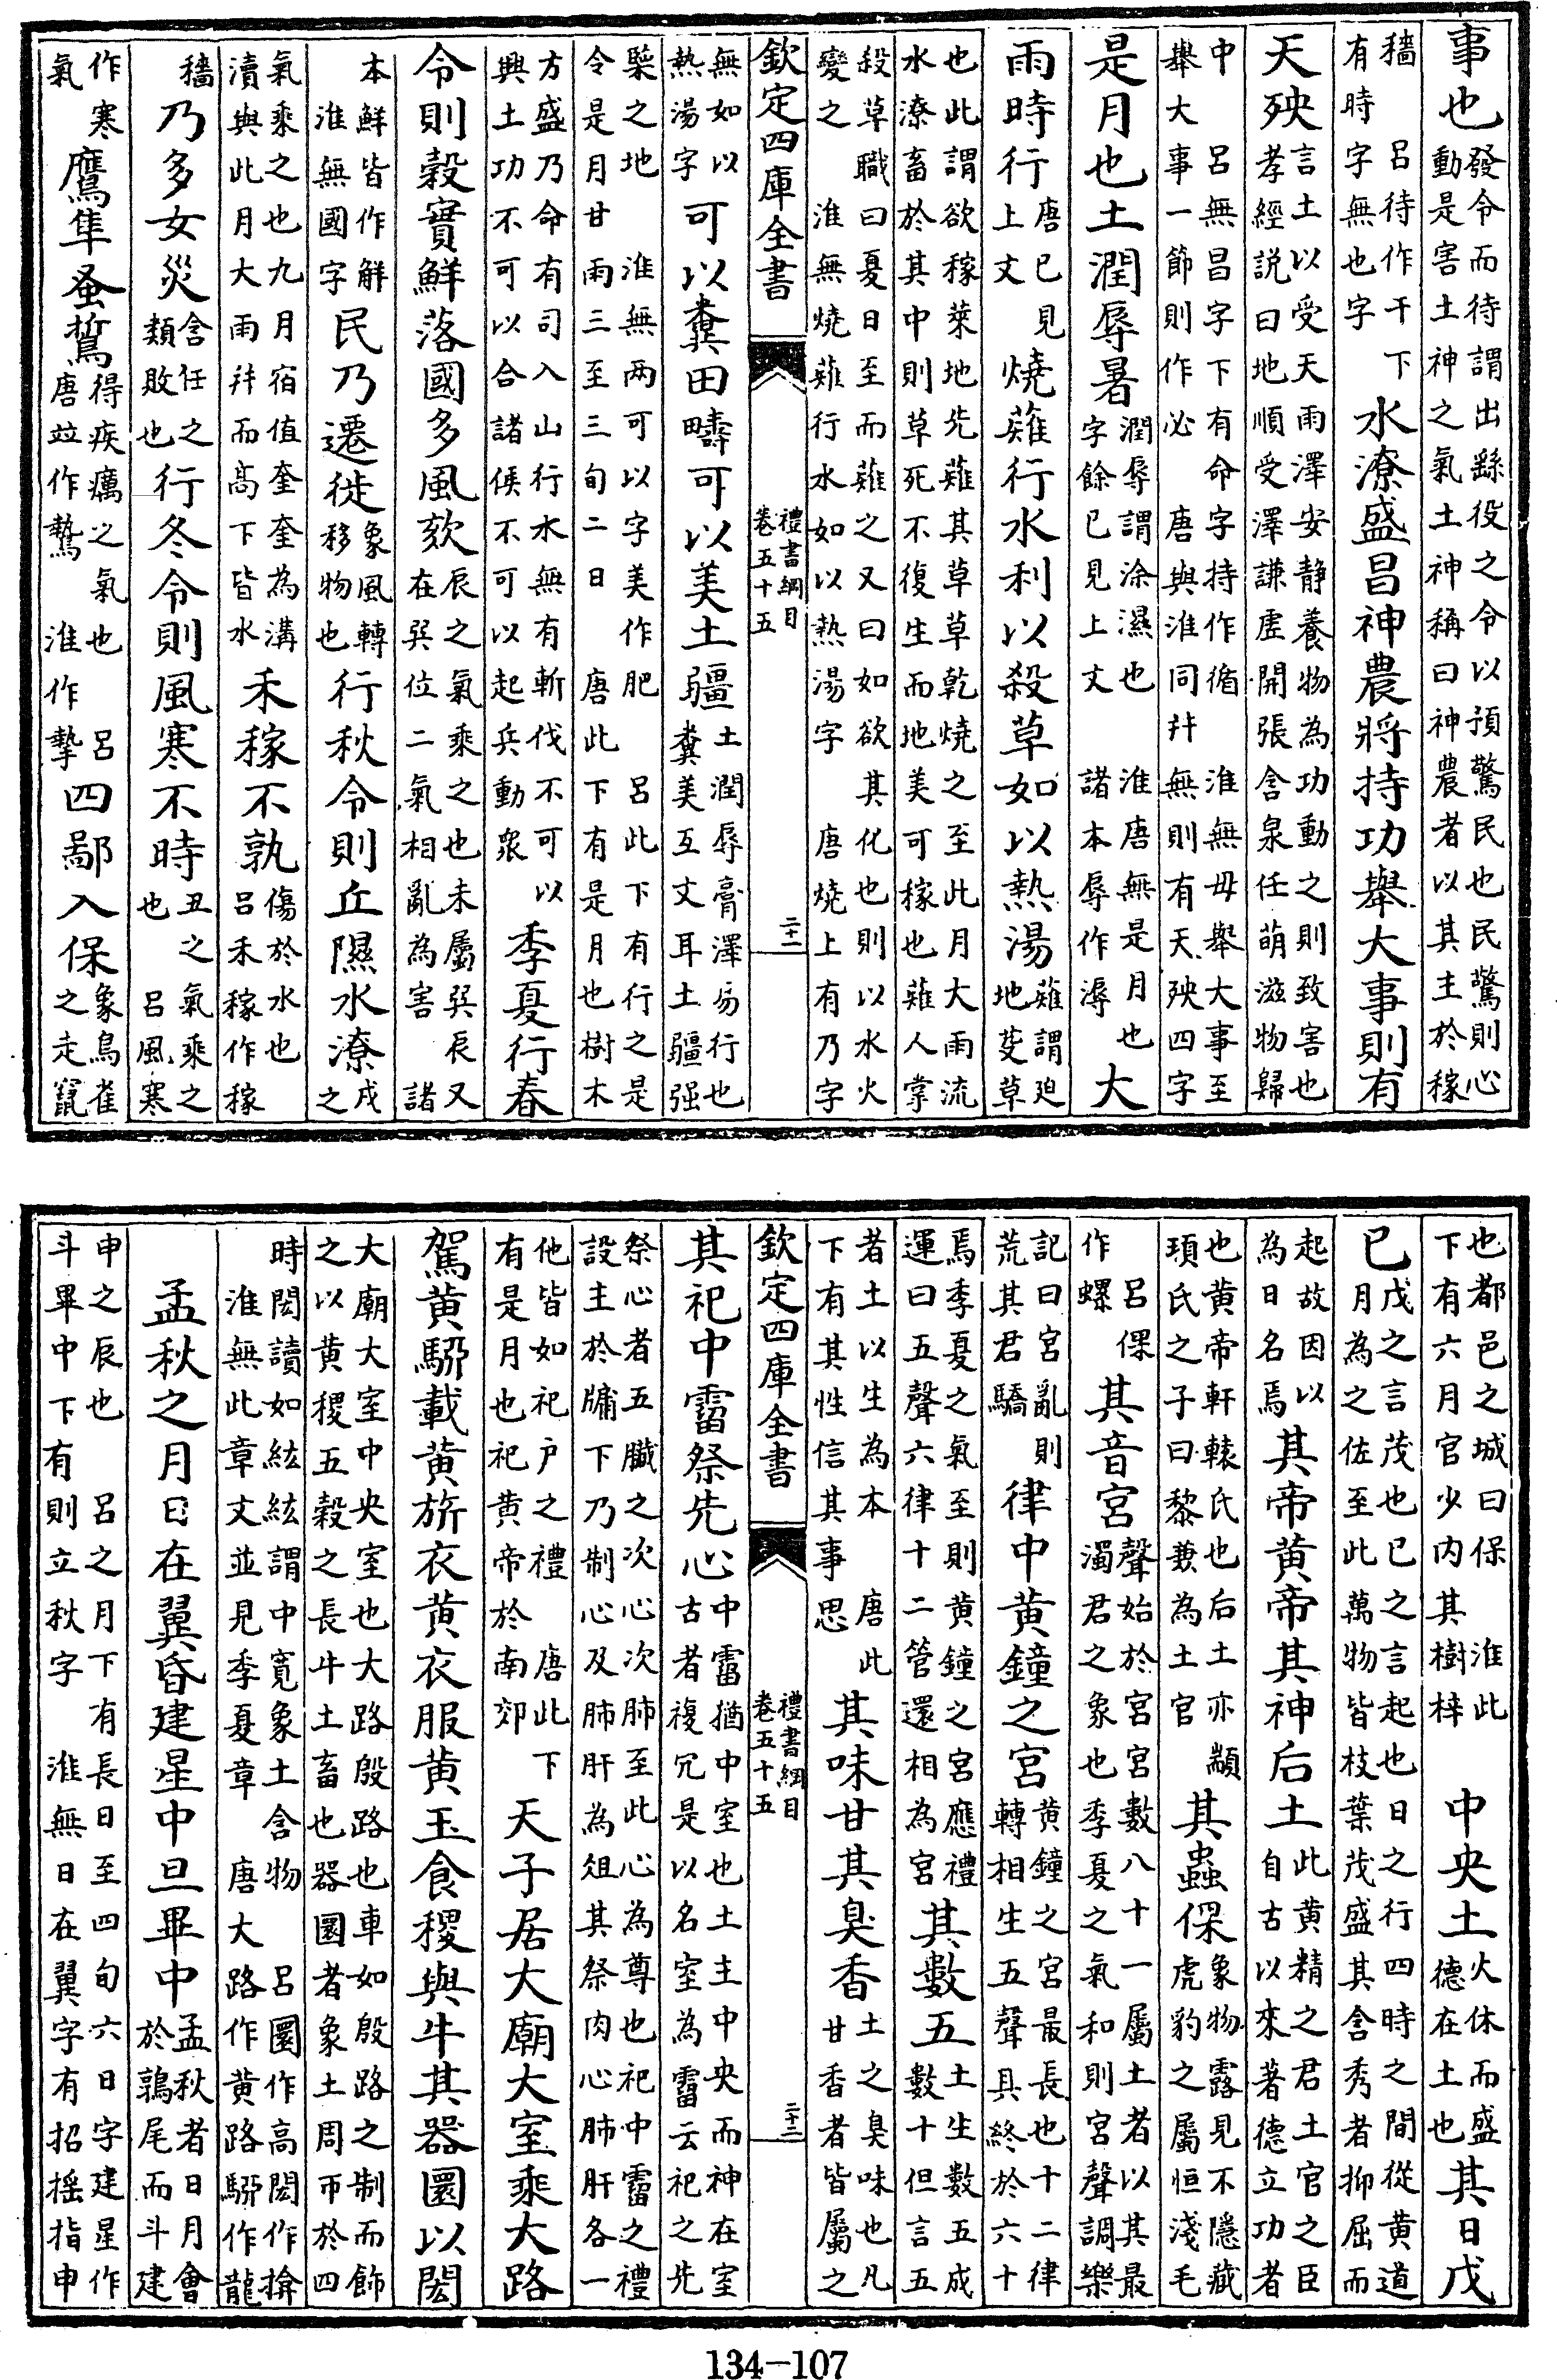 事也發令而待謂出繇役之令以預驚民也民驚則心動是害土神之氣土神稱曰神農者以其主於稼
穡　呂待作干下有時字無也字水潦盛昌神農將持功舉大事則有
天殃言土以受天雨澤安静養物為功動之則致害也孝經説曰地順受澤謙虛開張含泉任萌滋物歸
中　呂無昌字下有命字持作循　淮無毋舉大事至舉大事一節則作必　唐與淮同幷無則有天殃四字
是月也土潤辱暑潤辱謂涂濕也　淮唐無是月也字餘已見上文　諸本辱作溽大
雨時行唐已見上文燒薙行水利以殺草如以熱湯薙謂廹地芟草
也此謂欲稼萊地先薙其草草乾燒之至此月大雨流水潦畜於其中則草死不復生而地美可稼也薙人掌
殺草職曰夏日至而薙之又曰如欲其化也則以水火變之　淮無燒薙行水如以熱湯字　唐燒上有乃字
欽定四庫全書　禮書綱目　卷五十五　二十二
無如以熱湯字可以糞田疇可以美土疆土潤辱膏澤易行也糞美互文耳土疆强
㯺之地　淮無两可以字美作肥　呂此下有行之是令是月甘雨三至三旬二日　唐此下有是月也樹木
方盛乃命有司入山行水無有斬伐不可以興土功不可以合諸侯不可以起兵動衆季夏行春
令則穀實鮮落國多風欬辰之氣乘之也未屬巽辰又在巽位二氣相亂為害　諸
本鮮皆作解淮無國字民乃遷徙象風轉移物也行秋令則丘隰水潦戌之
氣乘之也九月宿值奎奎為溝瀆與此月大雨幷而高下皆水禾稼不孰傷於水也呂禾稼作稼
穡乃多女災含任之類敗也行冬令則風寒不時丑之氣乘之也　呂風寒
作寒氣鷹隼蚤鷙得疾癘之氣也　呂唐竝作驇　淮作摯四鄙入保象鳥雀之走竄
也都邑之城曰保　淮此下有六月官少内其樹梓中央土火休而盛德在土也其日戊
己戊之言茂也己之言起也日之行四時之間從黄道月為之佐至此萬物皆枝葉茂盛其含秀者抑屈而
起故因以為日名焉其帝黄帝其神后土此黄精之君土官之臣自古以來著德立功者
也黄帝軒轅氏也后土亦顓頊氏之子曰黎兼為土官其蟲倮象物露見不隱藏虎豹之屬恒淺毛
呂倮作螺其音宮聲始於宮宮數八十一屬土者以其最濁君之象也季夏之氣和則宮聲調樂
記曰宮亂則荒其君驕律中黄鐘之宮黄鐘之宮最長也十二律轉相生五聲具終於六十
焉季夏之氣至則黄鐘之宮應禮運曰五聲六律十二管還相為宮其數五土生數五成數十但言五
者土以生為本　唐此下有其性信其事思其味甘其臭香土之臭味也凡甘香者皆屬之
欽定四庫全書　禮書綱目　卷五十五　二十三
其祀中霤祭先心中霤猶中室也土主中央而神在室古者複穴是以名室為霤云祀之先
祭心者五臟之次心次肺至此心為尊也祀中霤之禮設主於牖下乃制心及肺肝為俎其祭肉心肺肝各一
他皆如祀户之禮　唐此下有是月也祀黄帝於南郊天子居大廟大室乘大路
駕黄駵載黄旂衣黄衣服黄玉食稷與牛其器圜以閎
大廟大室中央室也大路殷路也車如殷路之制而飾之以黄稷五穀之長牛土畜也器圜者象土周帀於四
時閎讀如紘紘謂中寛象土含物　呂圜作高閎作揜淮無此章文並見季夏章　唐大路作黄路駵作龍
孟秋之月日在翼昏建星中旦畢中孟秋者日月會於鶉尾而斗建
申之辰也　呂之月下有長日至四旬六日字建星作斗畢中下有則立秋字　淮無日在翼字有招揺指申
134-107